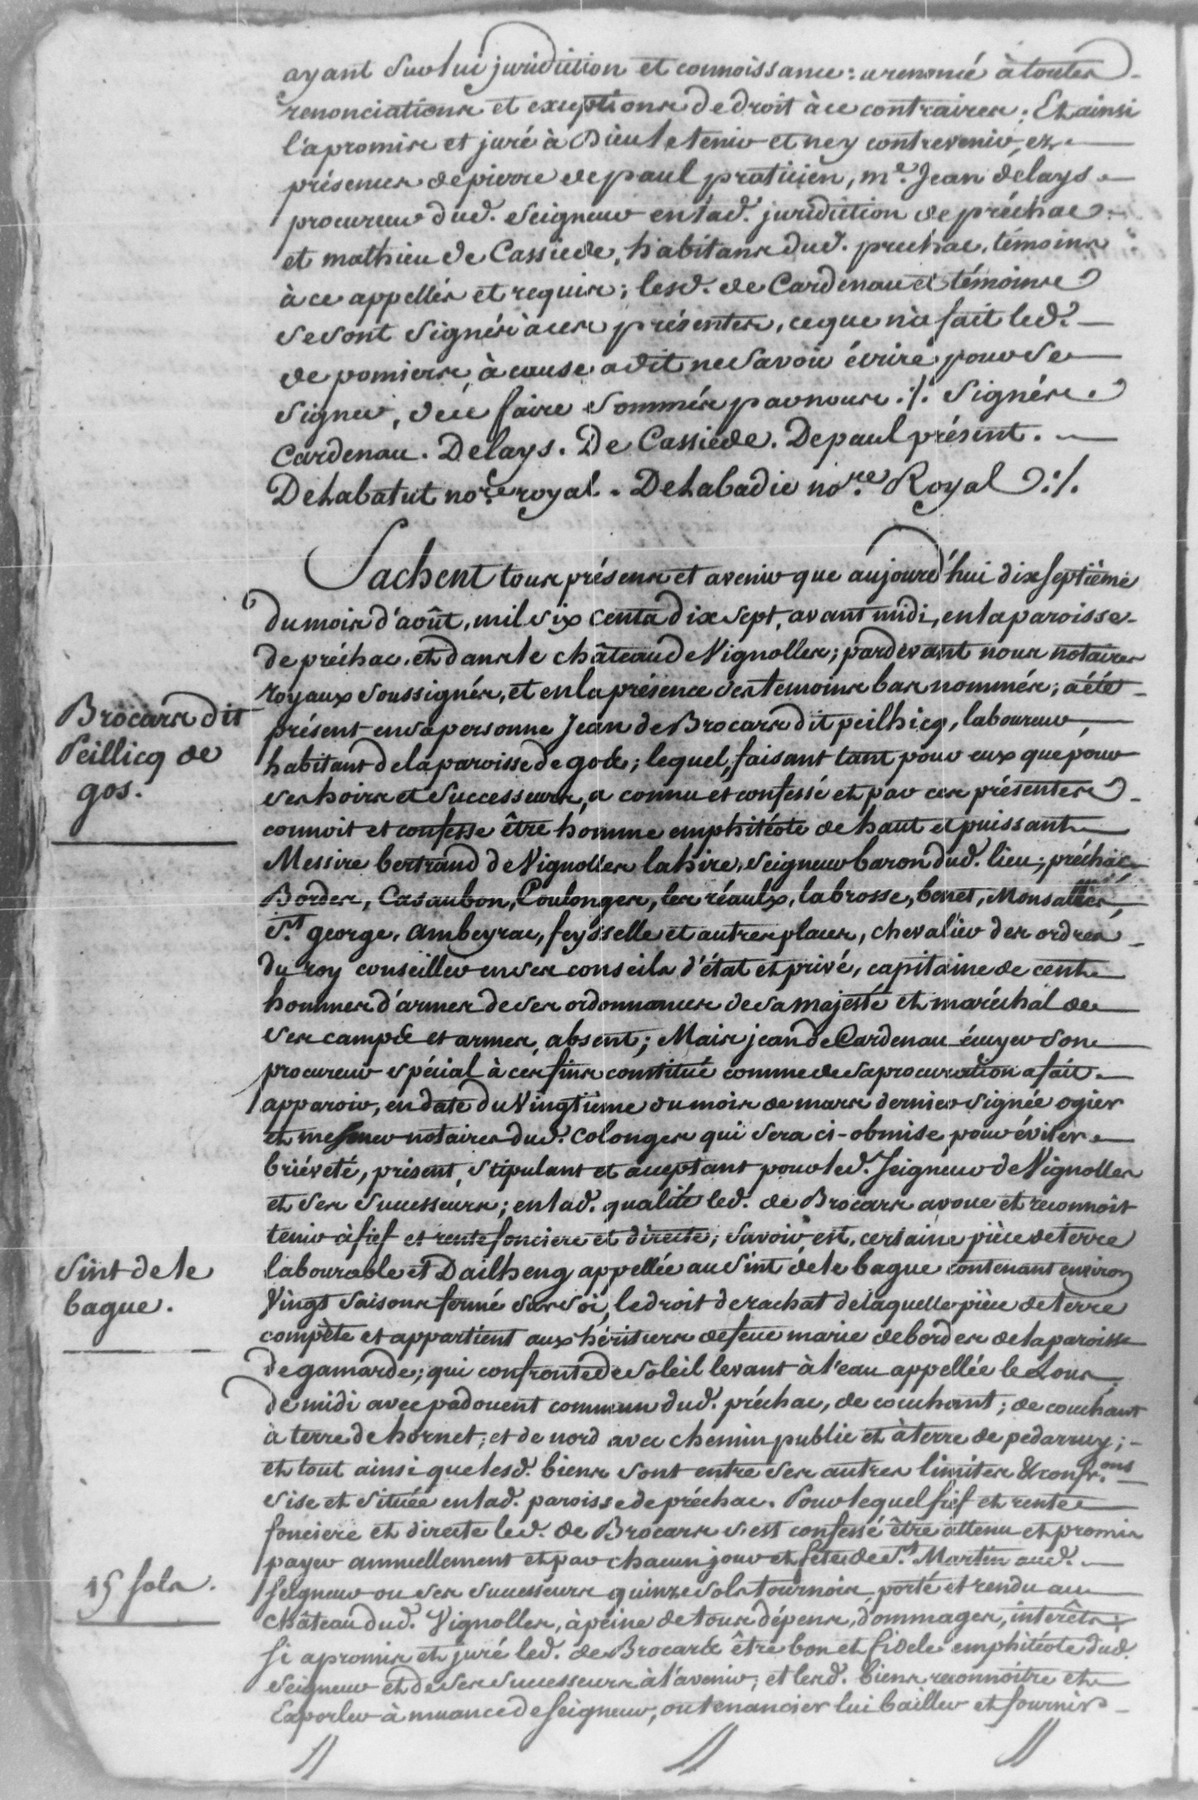 ayant sur lui juridiction et connoissance : a renoncé à toutes
renonciations et exceptions de droit à ce contraires ; Et ainsi
l'a promis et juré à Dieu le tenir et n'ey contrevenir, ez
présences de pierre de paul praticien, me. Jean delays
procureur dud. seigneur en lad. juridiction de préchac
et mathieu de Cassiede, habitans dud. prechac, témoins
à ce appellés et requis ; lesd. de Cardenau et témoins
se sont signés à ces présentes, ce que n'a fait led.
de pomiers, à cause a dit ne savoir écrire pour se
signer, de ce faire sommés par nous ./. signés
Cardenau. Delays. De Cassiede. Depaul présent.
Dehabatut nore. royal. Dehabadie nore. Royal ./.
Sachent tous présens et avenir que aujourd'hui dix septième
du mois d'août, mil six cents dix sept, avant midi, en la paroisse
de préchac, et dans le château de Vignolles ; pardevant nous notaires
royaux soussignés, et en la présence des temoins bas nommés ; a été
présent en sa personne Jean de Brocars dit peilhicq, laboureur,
Brocars dit
Peillicq de
gos.
habitant de la paroisse de gos ; lequel, faisant tant pour eux que pour
ses hoirs et successeurs, a connu et confessé et par ces présentes
connoit et confesse être homme emphitéote de haut et puissant
Messire bertrand de Vignolles lahire, seigneur baron dud. lieu, préchac
Bordes, Casaubon, Coulonges, les réaulx, labrosse, bonet, Monsalles,
St. george, ambeyrac, feysselle et autres places, chevalier des ordres
du roy conseiller en ses conseils d'état et privé, capitaine de cent
hommes d'armes de ses ordonnances de sa majesté et maréchal de
ses camps et armes, absent ; Mais jean de Cardenau écuyer son
procureur spécial à ces fins constitué comme de sa procuration a fait
apparoir, en date du Vingtième du mois de mars dernier signée ogier
et mesmer notaires dud. Colonges qui sera ci-obmise pour éviter
briéveté, présent, stipulant et acceptant pour led. Seigneur de Vignolles
et ses successeurs ; en lad. qualité led. de Brocars avoue et reconnoit
tenir à fief et rente fonciere et directe, savoir est, certaine pièce de terre
Sint de le
bague.
labourable et Dailheng appellée au Sint de le bague contenant environ
Vingt saisons fermé sur soi, le droit de rachat de laquelle pièce de terre
compète et appartient aux héritiers de feue marie de bordes de la paroisse
de gamarde ; qui confronte de soleil levant à l'eau appellée le Lous,
de midi avec padouent commun dud. préchac, de couchant ; de couchant
à terre de hornet ; et de nord avec chemin public et à terre de pedarruy ;
et tout ainsi que lesd. biens sont entre ses autres limites & confr.ons
sise et située en lad. paroisse de préchac. Pour lequel fief et rente
fonciere et directe led. de Brocars s'est confessé être attenu et promis
payer annuellement et par chacun jour et fête de St. Martin aud.
15 sols.
seigneur ou ses successeurs quinze sols tournois, porté et rendu au
château dud. Vignolles, à peine de tous dépens, dommages, intérêts :
si a promis et juré led. de Brocars être bon et fidele emphitéote dud.
seigneur et de ses successeurs à l'avenir ; et lesd. biens reconnoitre et
Exporler à muance de seigneur, ou tenancier lui bailler et fournir